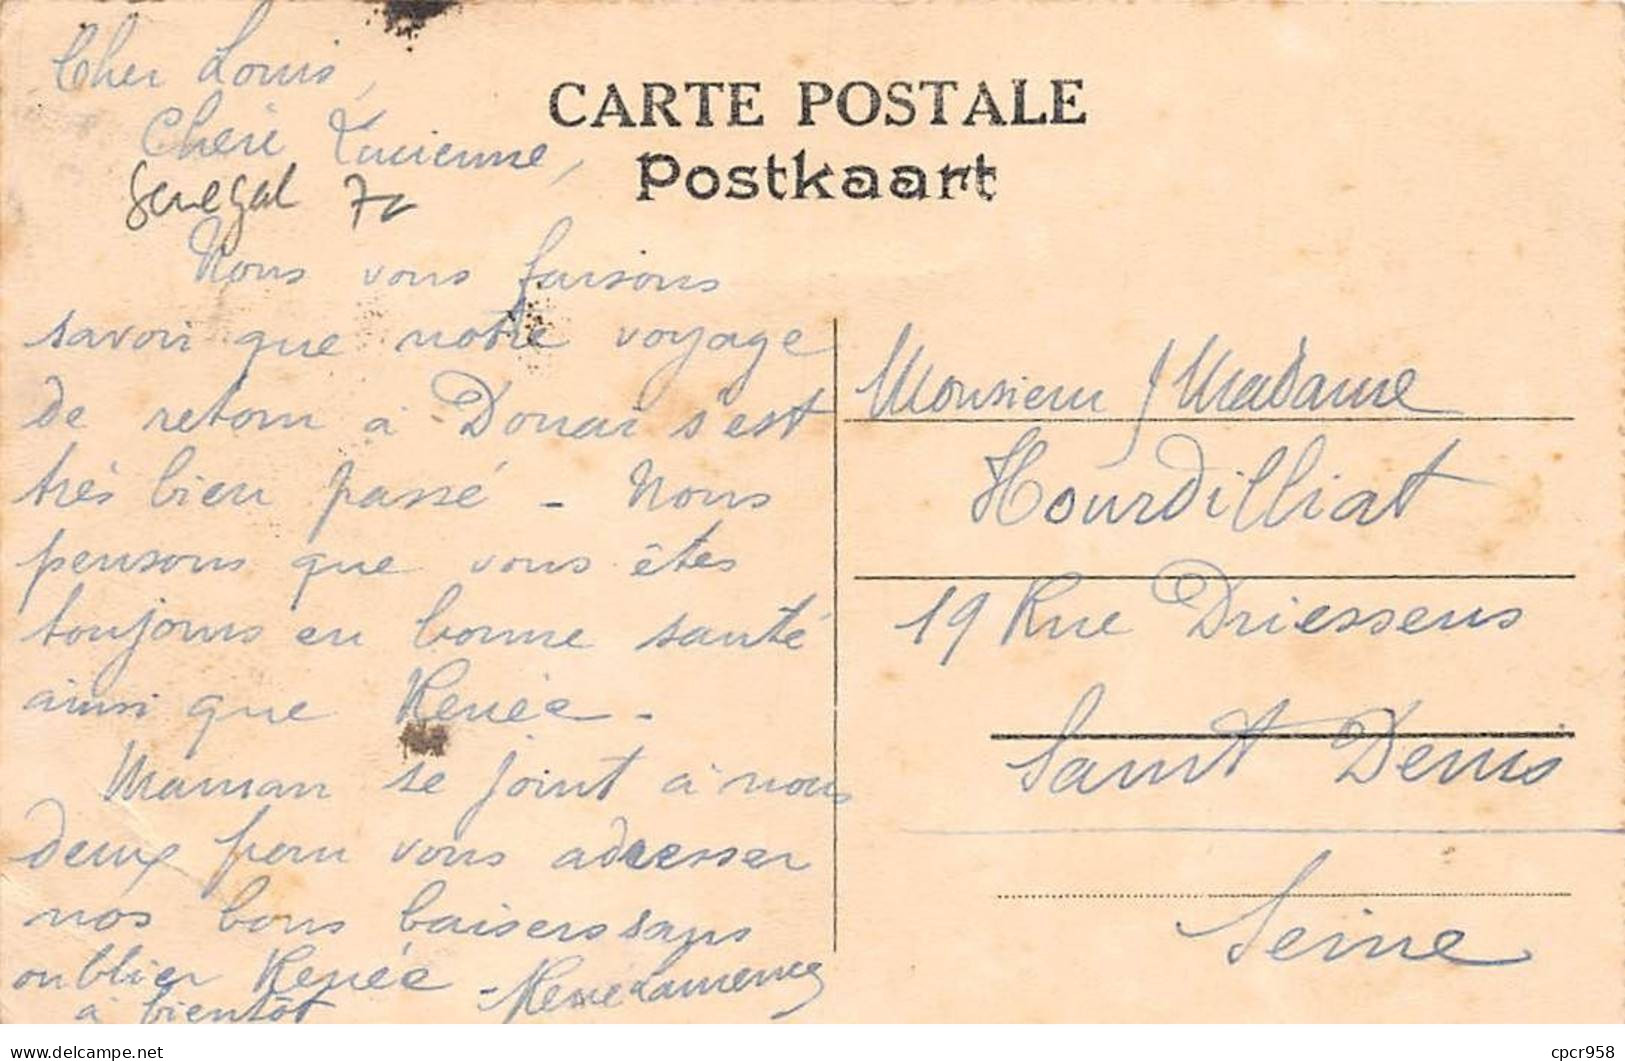 Cher Louis,
Chère Lucienne,
Senegal 70
CARTE POSTALE
Postkaart
Nous vous faisons
savoir que notre voyage
de retour à Douai s'est
très bien passé - Nous
pensons que vous êtes
toujours en bonne santé
ainsi que Renée -
Maman se joint à nous
deux pour vous adresser
nos bons baisers sans
oublier Renée -
à bientôt
Monsieur / Madame
Hourdilliat
19 Rue Driessens
Saint Denis
Seine
delcampe.net
cpcr958